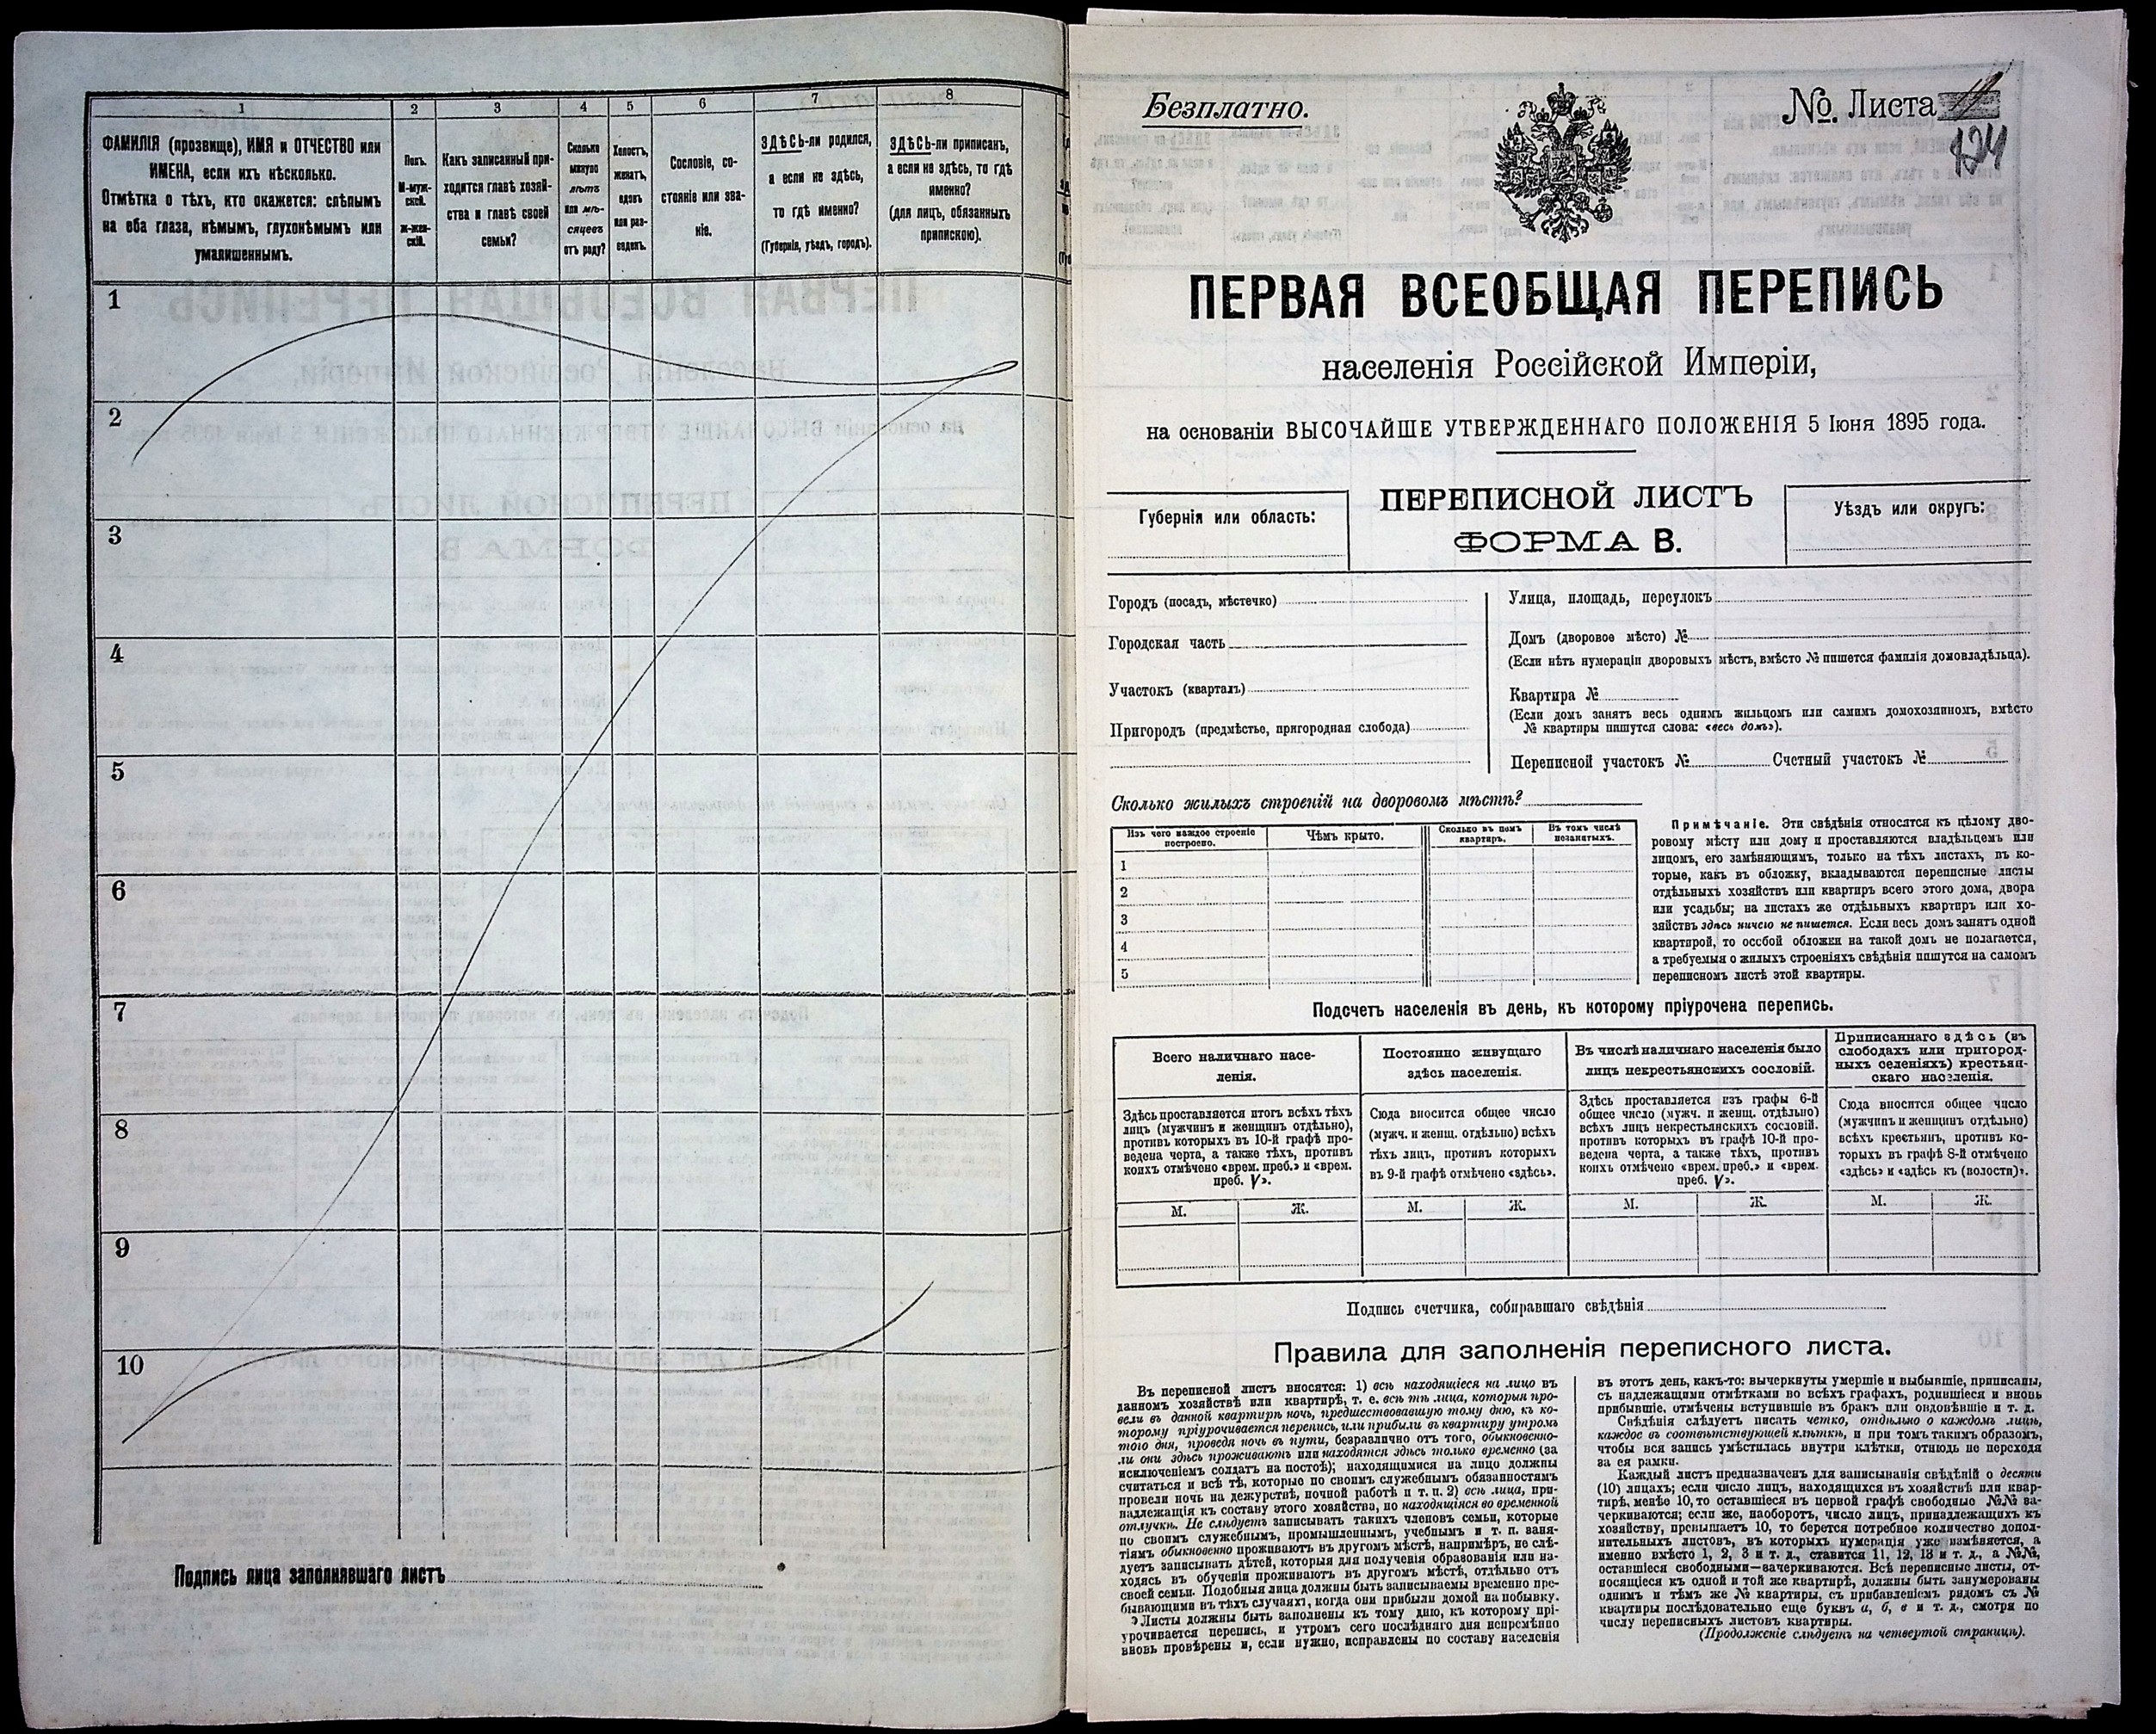 1
2
3
4
5
6
7
8
ФАМИЛІЯ (прозвище), ИМЯ и ОТЧЕСТВО или
ИМЕНА, если ихъ нѣсколько.
Отмѣтка о тѣхъ, кто окажется: слѣпымъ
на оба глаза, нѣмымъ, глухонѣмымъ или
умалишеннымъ.
Полъ.
М-муж-
ской.
ж-жен-
скій.
Какъ записанный при-
ходится главѣ хозяй-
ства и главѣ своей
семьи?
Сколько
минуло
лѣтъ
или мѣ-
сяцевъ
отъ роду?
Холостъ,
женатъ,
вдовъ
или раз-
веденъ.
Сословіе, со-
стояніе или зва-
ніе.
ЗДѢСЬ-ли родился,
а если не здѣсь,
то гдѣ именно?
(Губернія, уѣздъ, городъ).
ЗДѢСЬ-ли приписанъ,
а если не здѣсь, то гдѣ
именно?
(для лицъ, обязанныхъ
припискою).
1
2
3
4
5
6
7
8
9
10
Подпись лица заполнявшаго листъ
Безплатно.
№. Листа
124
ПЕРВАЯ ВСЕОБЩАЯ ПЕРЕПИСЬ
населенія Россійской Имперіи,
на основаніи ВЫСОЧАЙШЕ УТВЕРЖДЕННАГО ПОЛОЖЕНІЯ 5 Іюня 1895 года.
Губернія или область:
ПЕРЕПИСНОЙ ЛИСТЪ
ФОРМА В.
Уѣздъ или округъ:
Городъ (посадъ, мѣстечко)
Городская часть
Участокъ (кварталъ)
Пригородъ (предмѣстье, пригородная слобода)
Улица, площадь, переулокъ
Домъ (дворовое мѣсто) №
(Если нѣтъ нумераціи дворовыхъ мѣстъ, вмѣсто № пишется фамилія домовладѣльца).
Квартира №
(Если домъ занятъ весь однимъ жильцомъ или самимъ домохозяиномъ, вмѣсто
№ квартиры пишутся слова: «весь домъ»).
Переписной участокъ № Счетный участокъ №
Сколько жилыхъ строеній на дворовомъ мѣстѣ?
Изъ чего каждое строеніе
построено.
Чѣмъ крыто.
Сколько въ немъ
квартиръ.
Въ томъ числѣ
незанятыхъ.
1
2
3
4
5
Примѣчаніе. Эти свѣдѣнія относятся къ цѣлому дво-
ровому мѣсту или дому и проставляются владѣльцемъ или
лицомъ, его замѣняющимъ, только на тѣхъ листахъ, въ ко-
торые, какъ въ обложку, вкладываются переписные листы
отдѣльныхъ хозяйствъ или квартиръ всего этого дома, двора
или усадьбы; на листахъ же отдѣльныхъ квартиръ или хо-
зяйствъ здѣсь ничего не пишется. Если весь домъ занятъ одной
квартирой, то особой обложки на такой домъ не полагается,
а требуемыя о жилыхъ строеніяхъ свѣдѣнія пишутся на самомъ
переписномъ листѣ этой квартиры.
Подсчетъ населенія въ день, къ которому пріурочена перепись.
Всего наличнаго насе-
ленія.
Постоянно живущаго
здѣсь населенія.
Въ числѣ наличнаго населенія было
лицъ некрестьянскихъ сословій.
Приписаннаго здѣсь (въ
слободахъ или пригород-
ныхъ селеніяхъ) крестьян-
скаго населенія.
Здѣсь проставляется итогъ всѣхъ тѣхъ
лицъ (мужчинъ и женщинъ отдѣльно),
противъ которыхъ въ 10-й графѣ про-
ведена черта, а также тѣхъ, противъ
коихъ отмѣчено «врем. преб.» и «врем.
преб. V».
Сюда вносится общее число
(мужч. и женщ. отдѣльно) всѣхъ
тѣхъ лицъ, противъ которыхъ
въ 9-й графѣ отмѣчено «здѣсь».
Здѣсь проставляется изъ графы 6-й
общее число (мужч. и женщ. отдѣльно)
всѣхъ лицъ некрестьянскихъ сословій.
противъ которыхъ въ графѣ 10-й про-
ведена черта, а также тѣхъ, противъ
коихъ отмѣчено «врем. преб.» и «врем.
преб. V».
Сюда вносится общее число
(мужчинъ и женщинъ отдѣльно)
всѣхъ крестьянъ, противъ ко-
торыхъ въ графѣ 8-й отмѣчено
«здѣсь» и «здѣсь къ (волости)».
М. Ж. М. Ж. М. Ж. М. Ж.
Подпись счетчика, собиравшаго свѣдѣнія
Правила для заполненія переписного листа.
Въ переписной листъ вносятся: 1) всѣ находящіеся на лицо въ
данномъ хозяйствѣ или квартирѣ, т. е. всѣ тѣ лица, которыя про-
вели въ данной квартирѣ ночь, предшествовавшую тому дню, къ ко-
торому пріурочивается перепись, или прибыли въ квартиру утромъ
того дня, проведя ночь въ пути, безразлично отъ того, обыкновенно-
ли они здѣсь проживаютъ или находятся здѣсь только временно (за
исключеніемъ солдатъ на постоѣ); находящимися на лицо должны
считаться и всѣ тѣ, которые по своимъ служебнымъ обязанностямъ
провели ночь на дежурствѣ, ночной работѣ и т. п. 2) всѣ лица, при-
надлежащія къ составу этого хозяйства, но находящіяся во временной
отлучкѣ. Не слѣдуетъ записывать такихъ членовъ семьи, которые
по своимъ служебнымъ, промышленнымъ, учебнымъ и т. п. заня-
тіямъ обыкновенно проживаютъ въ другомъ мѣстѣ, напримѣръ, не слѣ-
дуетъ записывать дѣтей, которыя для полученія образованія или на-
ходясь въ обученіи проживаютъ въ другомъ мѣстѣ, отдѣльно отъ
своей семьи. Подобныя лица должны быть записываемы временно пре-
бывающими въ тѣхъ случаяхъ, когда они прибыли домой на побывку.
Листы должны быть заполнены къ тому дню, къ которому прі-
урочивается перепись, и утромъ сего послѣдняго дня непремѣнно
вновь провѣрены и, если нужно, исправлены по составу населенія
въ этотъ день, какъ-то: вычеркнуты умершіе и выбывшіе, приписаны,
съ надлежащими отмѣтками во всѣхъ графахъ, родившіеся и вновь
прибывшіе, отмѣчены вступившіе въ бракъ или овдовѣвшіе и т. д.
Свѣдѣнія слѣдуетъ писать четко, отдѣльно о каждомъ лицѣ,
каждое въ соотвѣтствующей клѣткѣ, и при томъ такимъ образомъ,
чтобы вся запись умѣстилась внутри клѣтки, отнюдь не переходя
за ея рамки.
Каждый листъ предназначенъ для записыванія свѣдѣній о десяти
(10) лицахъ; если число лицъ, находящихся въ хозяйствѣ или квар-
тирѣ, менѣе 10, то оставшіеся въ первой графѣ свободные №№ за-
черкиваются; если же, наоборотъ, число лицъ, принадлежащихъ къ
хозяйству, превышаетъ 10, то берется потребное количество допол-
нительныхъ листовъ, въ которыхъ нумерація уже измѣняется, а
именно вмѣсто 1, 2, 3 и т. д., ставится 11, 12, 13 и т. д., а №№,
оставшіеся свободными—зачеркиваются. Всѣ переписные листы, от-
носящіеся къ одной и той же квартирѣ, должны быть занумерованы
однимъ и тѣмъ же № квартиры, съ прибавленіемъ рядомъ съ №
квартиры послѣдовательно еще буквъ а, б, в и т. д., смотря по
числу переписныхъ листовъ квартиры.
(Продолженіе слѣдуетъ на четвертой страницѣ).